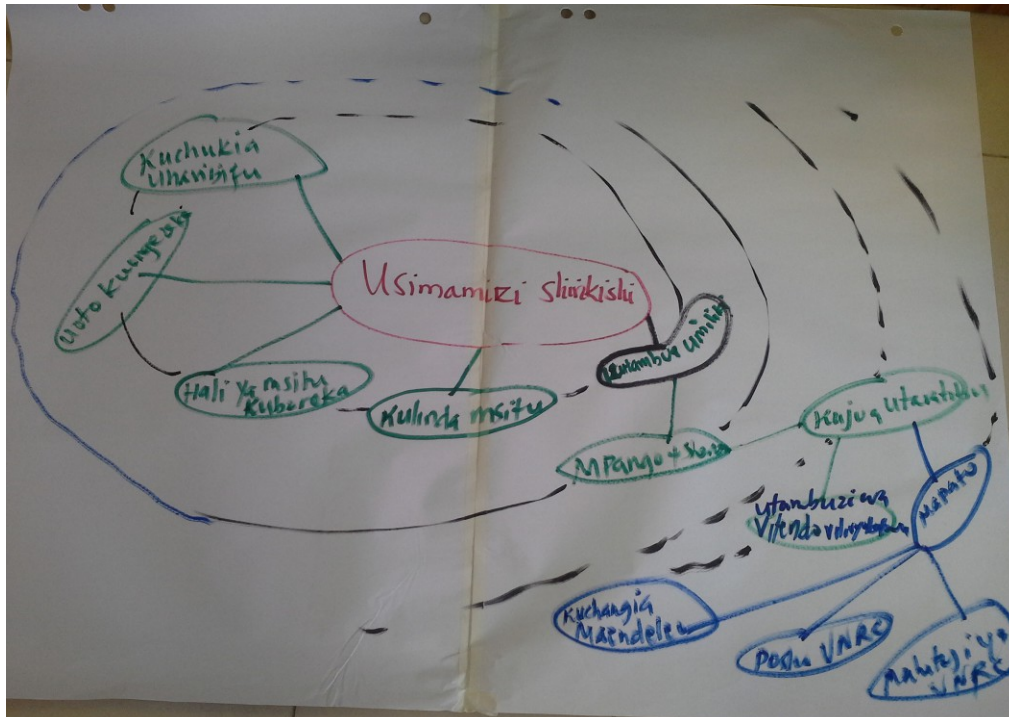 Kuchukia
Uharibifu
Uoto kuongezeka
Usimamizi shirikishi
Hali ya msitu
Kuboreka
Kulinda msitu
Kutambua Umiliki
Mpango + Sheria
Kujua Utaratibu
Mapato
Utambuzi wa
Vitendo
Kuchangia
Maendeleo
Posho VNRC
VNRC